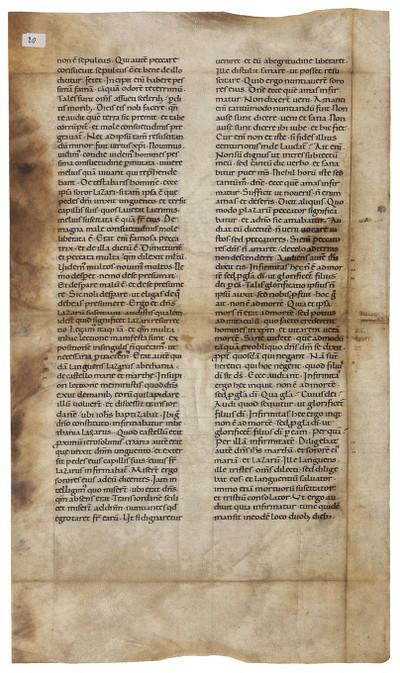 20
non ē sepultus · Qui autē peccare
consuevit sepultus ē et bene de illo
dicitur fetet · Incipit enī habere pes
simā famā tāquā odorē teterrimū ·
Tales sunt om̄s assueti sceleribus
audit que terra sic premit · et tabe
corrūpit · et mole consuetudinis pre
gravat · Nec ad ipsū tam̄ resuscitan
dū minor fuit virtus xp̄i · Novimus
vidim; cotidie homines pes
sima consuetudine pmutata · vivere
melius quā vivant qui reprehende
bant · Detestabaris hominē · ecce
ipsa soror Lazari · si tam̄ ipsa ē que
pedes dn̄i unxit unguento · et tersit
capillis suis · quos laverat lacrimis
melius suscitata ē quā fr̄ eius · De
magna male consuetudinis mole
liberata ē · Erat enī famosa pecca
trix · et de illa dictū ē · Dimittunt
ei peccata multa · qm̄ dilexit multū
Videm; multos · novim; multos · Ne
mo desperet · nemo de se presumat
Et desperare malū ē · et de se presume
re · Sic noli desperare · ut eligas de quo
debeas presumere · Ergo et dn̄s
Lazarū suscitavit · audistis qualem
idest quid significet Lazari resurre
ctio · Legam; iam · et qm̄ multa
in hac lectione manifesta sunt · ex
positionē in singulis n̄ querim; ut
necessaria ptractem; · Erat autē qui
dā languens Lazarus a bethania
de castello marie et marthe · In supe
riori lectione meministis quod dn̄s
exiit de manib; eorū qui lapidare
illū voluerant · et discessit trans ior
danē · ubi iohs̄ baptizabat · Ibi ergo
dn̄o constituto infirmabatur in be
thania lazarus · Quod castellū erat
pximū ierosolimis · Maria autē erat
que unxit dn̄m unguento · et exter
sit pedes eius capillis suis · cuius fr̄
lazarus infirmabat · Miserunt ergo
sorores eius ad eū dicentes · Iam in
telligim; quo miserunt · ubi erat dn̄s ·
qm̄ absens erat · Trans iordanē scili
cet miserunt ad dn̄m · nuntiantes qd
egrotaret fr̄ earū · Ut si dignaretur
veniret · et eū ab egritudine liberaret
Ille distulit sanare · ut posset resu
scitare · Quid ergo nuntiaverunt soro
res eius · Dn̄e ecce quē amas infir
matur · Non dixerunt veni · Amanti
enī tantūmodo nuntiandū fuit · Non
ausē sunt dicere veni et sana · Non
ausē sunt dicere ibi iube et hic fiet
Cur enī non et iste · si fides illius
centurionis inde laudatur · Ait enī
Non sū dignus ut intres sub tectū
meū · sed tantū dic verbo · et sana
bitur puer m̄s · Nichil horū iste sed
tantūm · dn̄e · ecce quē amas infir
matur · Sufficit ut noveris · n̄ enim
amas et deseris · Dicit aliquis · Quo
modo p lazarū peccator significa
batur · et a dn̄o sic amabatur · Au
diat eū dicentē · n̄ veni vocare iu
stos sed peccatores · Si enī peccato
res ds̄ n̄ amaret · de celo ad terras
non descenderet · Audiens autē ih̄s
dixit eis · Infirmitas hec n̄ ē ad mor
tē sed p gl̄a dī · ut glorificet filius
dei p eā · Talis glorificatio ipsius n̄
ipsū auxit · sed nobis pfuit · hoc ḡ
ait · non ē ad mortē · Quia et ipsa
mors n̄ erat ad mortē · sed potius
ad miraculū · quo facto crederent
homines in xp̄m · et vitarent verā
mortē · Sane videte · que admodū
tāquā ex obliquo dn̄s dm̄ se dixit
ppt quosdā qui negant · Nā sunt
heretici · qui hoc negent · quod filius
dei sit ds̄ · Ecce audiant · Infirmitas
ergo hec inquit · non ē ad mortē
sed p gl̄a dī · Qua gl̄a · Cuius dei ·
Audi quod sequitur · ut glorificet
filius dī · Infirmitas hec ergo inqt
non ē ad mortē · sed p gl̄a dī · ut
glorificet filius dī p eam · Per quā ·
Per illā infirmitatē · Diligebat
autē dn̄s ih̄s marthā · et sororē ei
mariā · et lazarū · Ille languens ·
ille tristes · om̄s dilecti · sed dilige
bat eos · et languentiū salvator ·
immo etiā mortuorū suscitator ·
et tristiū consolator · Ut ergo au
divit quia infirmatur · tunc quidē
mansit in eodē loco duob; dieb; ·